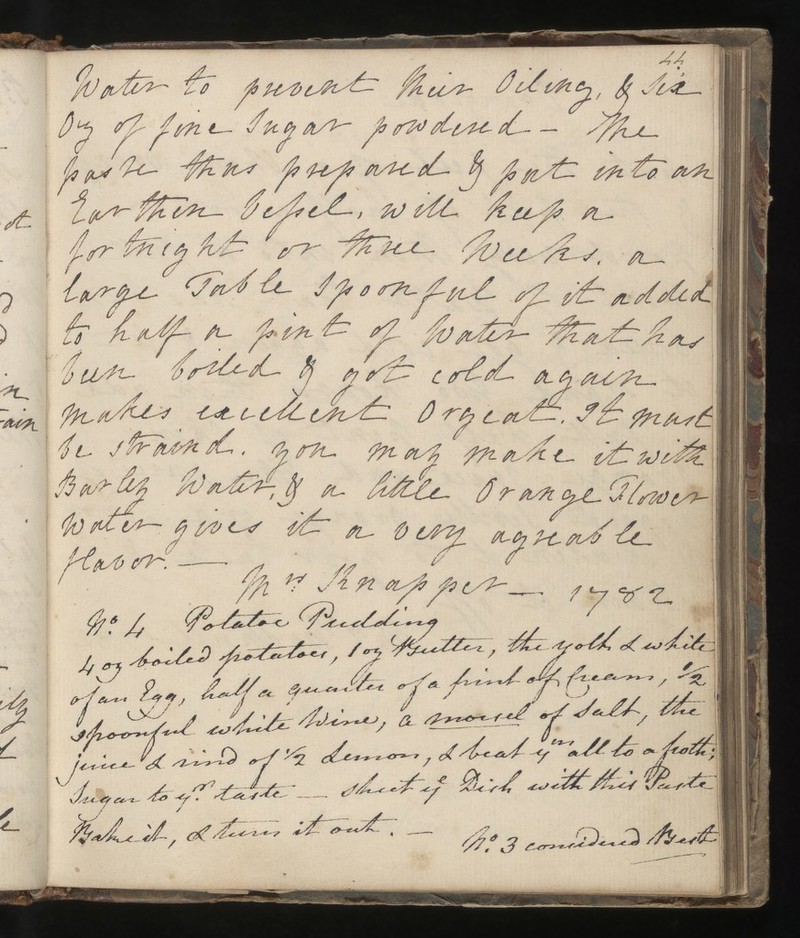 44
Water to prevent their Oiling, & Six
Ozs of fine Sugar powdered - The
paste thus prepared & put into an
Earthen Veſsel, will keep a
fortnight or three Weeks. a
large Table Spoonful of it added
to half a pint of Water that has
been boiled & got cold again
makes excellent Orgeat. It must
be straind. you may make it with
Barley Water, & a little Orange Flower
Water gives it a very agreable
flavor. —
Mrs Knapper — 1782
No. 4 Potatoe Pudding
4 oz boiled potatoes, 1 oz Butter, the yolk & white
of an Egg, half a quarter of a pint of Cream, 1/2
spoonful white Wine, a morsel of Salt, the
juice & rind of 1/2 Lemon, & beat ym all to a froth;
Sugar to yr. taste — sheet ye Dish with this Paste
Bake it, & turn it out. —
No. 3 considered Best
ot
in
rain